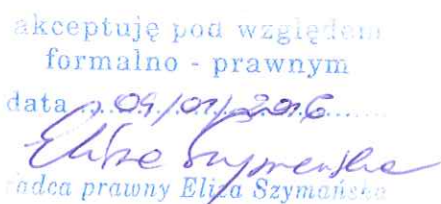 akceptuję pod względem
formalno - prawnym
data 09/01/2016
Eliza Szymańska
radca prawny Eliza Szymańska